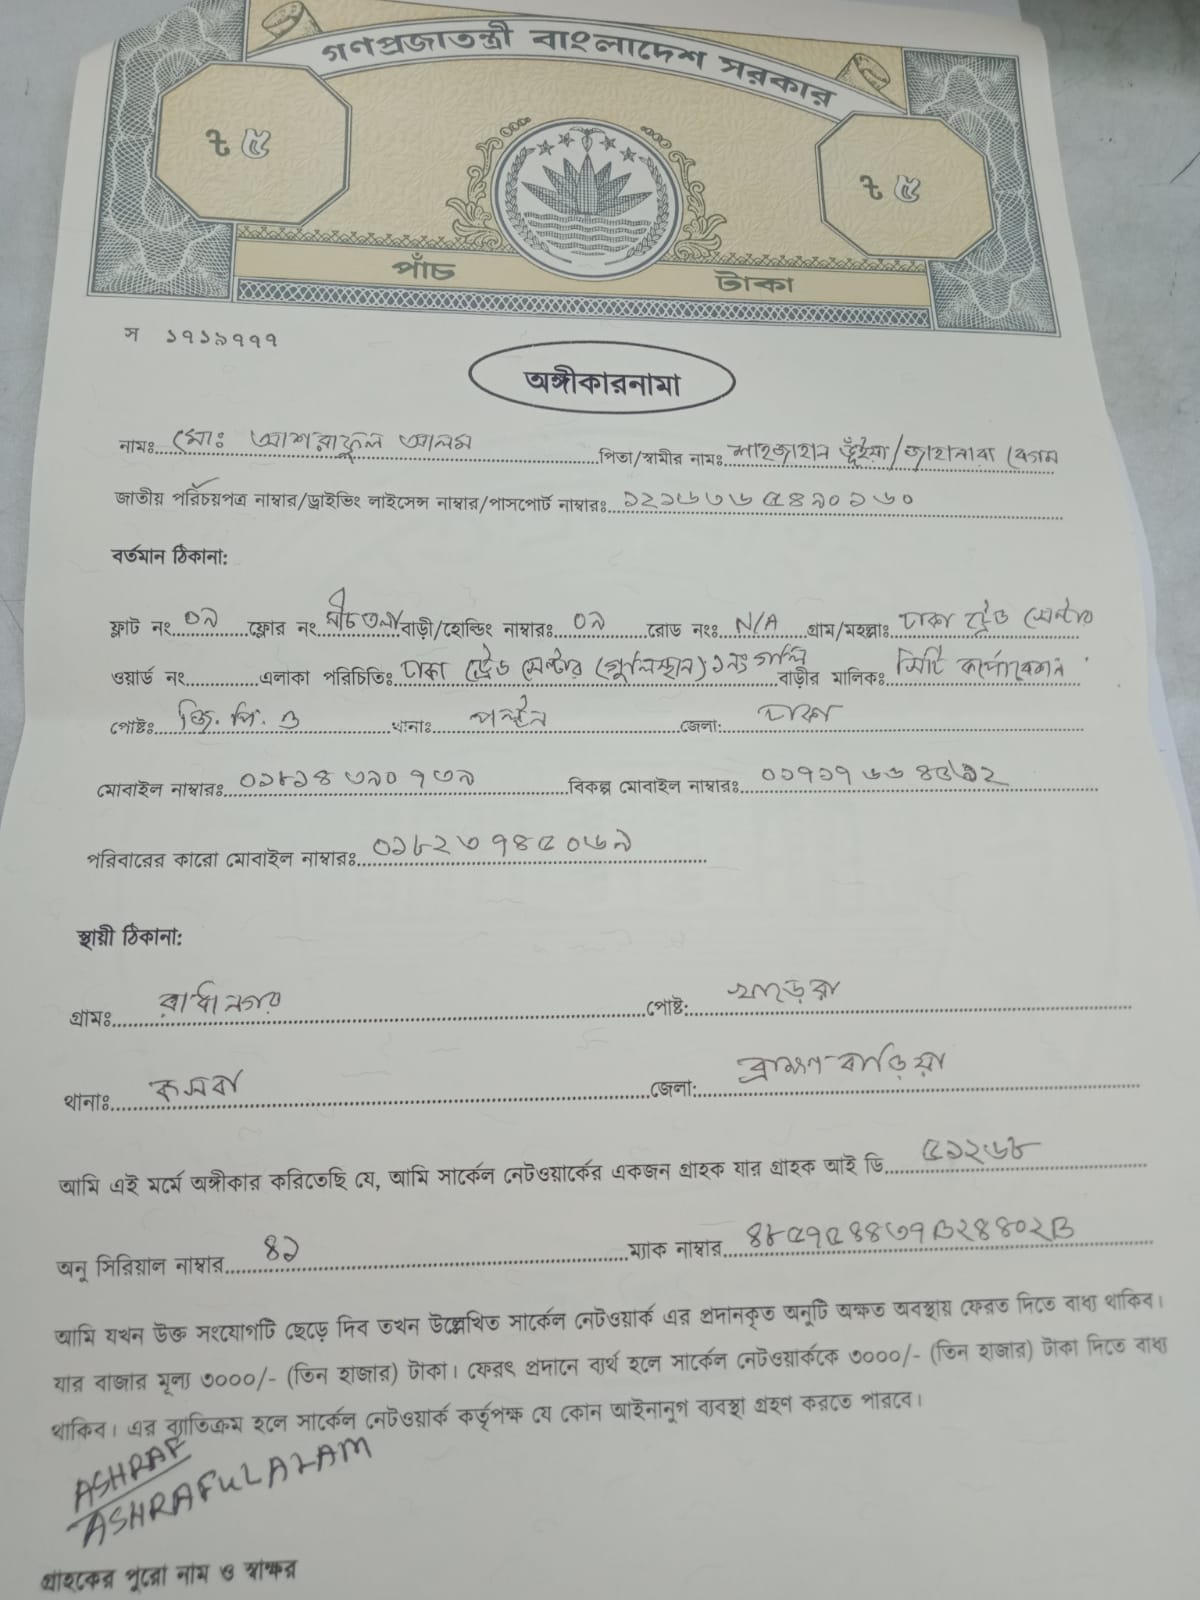 গণপ্রজাতন্ত্রী বাংলাদেশ সরকার
৳ ৫ ৳ ৫
পাঁচ টাকা
স ১৭১৯৭৭৭
অঙ্গীকারনামা
নামঃ মোঃ আশরাফুল আলম পিতা/স্বামীর নামঃ শাহজাহান ভূঁইয়া/জাহানারা বেগম
জাতীয় পরিচয়পত্র নাম্বার/ড্রাইভিং লাইসেন্স নাম্বার/পাসপোর্ট নাম্বারঃ
বর্তমান ঠিকানা:
ফ্লাট নং ০৯ ফ্লোর নং নীচতলা বাড়ী/হোল্ডিং নাম্বারঃ ০৯ রোড নংঃ N/A গ্রাম/মহল্লাঃ ঢাকা ট্রেড সেন্টার
ওয়ার্ড নং এলাকা পরিচিতিঃ ঢাকা ট্রেড সেন্টার (গুলিস্থান) ১নং গলি বাড়ীর মালিকঃ সিটি কর্পোরেশন
পোষ্টঃ জি. পি. ও থানাঃ পল্টন জেলা: ঢাকা
মোবাইল নাম্বারঃ ০১৮১৪৩৯০৭৩৯ বিকল্প মোবাইল নাম্বারঃ
পরিবারের কারো মোবাইল নাম্বারঃ ০১৮২৩৭৪৫০৬৯
স্থায়ী ঠিকানা:
গ্রামঃ রাধানগর পোষ্ট: খাড়েরা
থানাঃ কসবা জেলা: ব্রাহ্মণবাড়িয়া
আমি এই মর্মে অঙ্গীকার করিতেছি যে, আমি সার্কেল নেটওয়ার্কের একজন গ্রাহক যার গ্রাহক আই ডি ৫১২৬৮
অনু সিরিয়াল নাম্বার ৪১ ম্যাক নাম্বার ৪৮৫৭৫৪৪৩৭B২৪৪০২B
আমি যখন উক্ত সংযোগটি ছেড়ে দিব তখন উল্লেখিত সার্কেল নেটওয়ার্ক এর প্রদানকৃত অনুটি অক্ষত অবস্থায় ফেরত দিতে বাধ্য থাকিব।
যার বাজার মূল্য ৩০০০/- (তিন হাজার) টাকা। ফেরৎ প্রদানে ব্যর্থ হলে সার্কেল নেটওয়ার্ককে ৩০০০/- (তিন হাজার) টাকা দিতে বাধ্য
থাকিব। এর ব্যাতিক্রম হলে সার্কেল নেটওয়ার্ক কর্তৃপক্ষ যে কোন আইনানুগ ব্যবস্থা গ্রহণ করতে পারবে।
ASHRAF
ASHRAFUL ALAM
গ্রাহকের পুরো নাম ও স্বাক্ষর